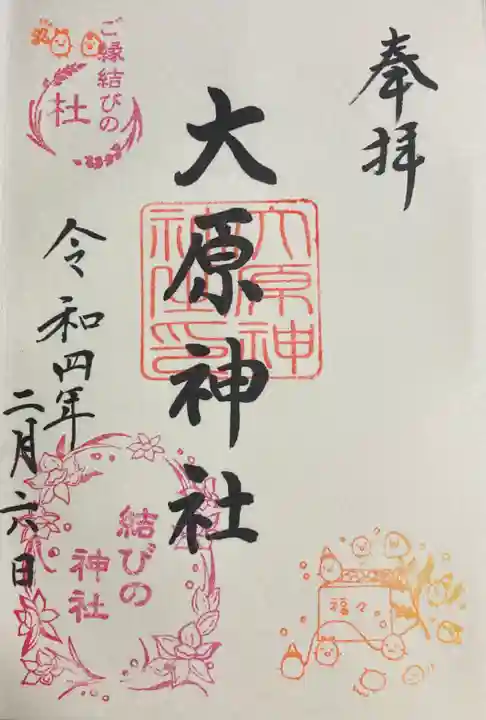 奉拝
大原神社
大原神社印
令和四年
二月六日
ご縁結びの
杜
結びの
神社
福々